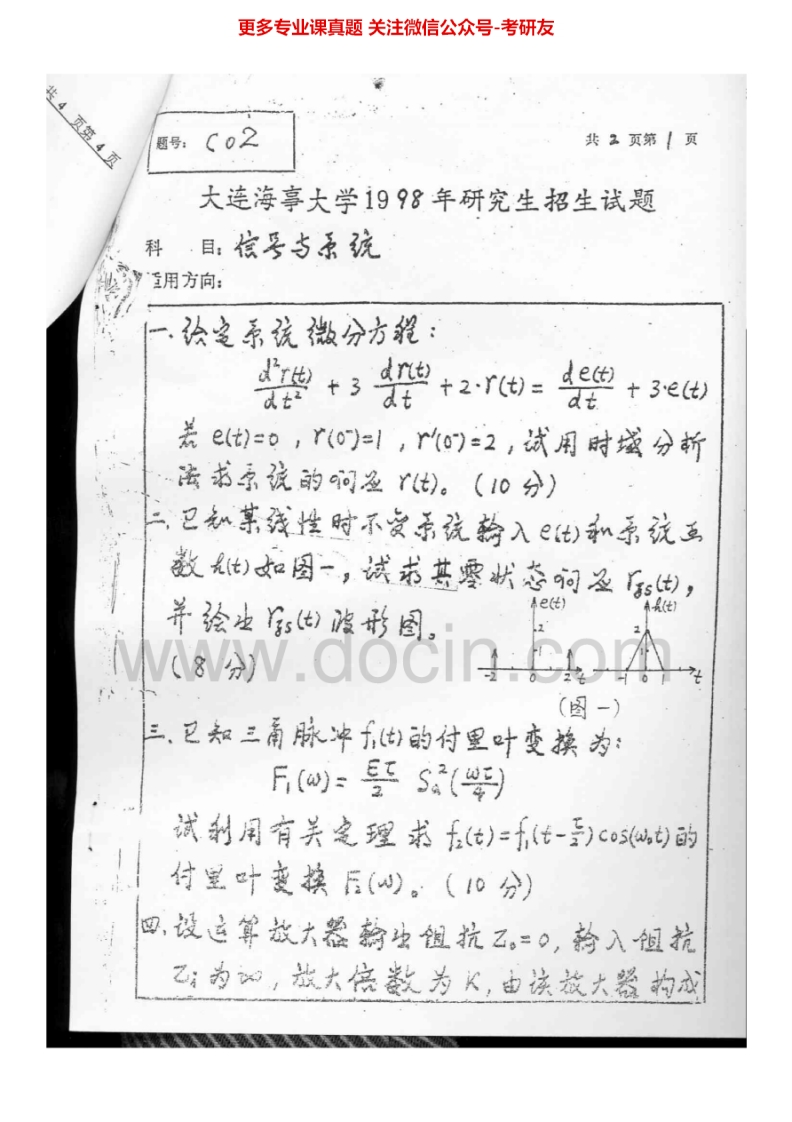 更多专业课真题 关注微信公众号-考研友
共 4 页第 4 页
题号: C02
共 2 页第 1 页
大连海事大学1998年研究生招生试题
科 目: 信号与系统
适用方向:
一.给定系统微分方程:
d²r(t)/dt² + 3 dr(t)/dt + 2·r(t) = de(t)/dt + 3·e(t)
若 e(t)=0, r(0⁻)=1, r′(0⁻)=2, 试用时域分析
法求系统的响应 r(t)。(10分)
二.已知某线性时不变系统输入e(t)和系统函
数h(t)如图一,试求其零状态响应 rzs(t),
并绘出 rzs(t) 波形图。
(8分)
e(t)
2
1
-2 0 2 t
h(t)
2
1
-1 0 1 t
(图一)
www.docin.com
三.已知三角脉冲f₁(t)的付里叶变换为:
F₁(ω) = Eτ/2 Sa²(ωτ/4)
试利用有关定理求 f₂(t)=f₁(t-τ/2)cos(ω₀t)的
付里叶变换 F₂(ω)。(10分)
四.设运算放大器输出阻抗Z₀=0, 输入阻抗
Zi为∞, 放大倍数为K, 由该放大器构成